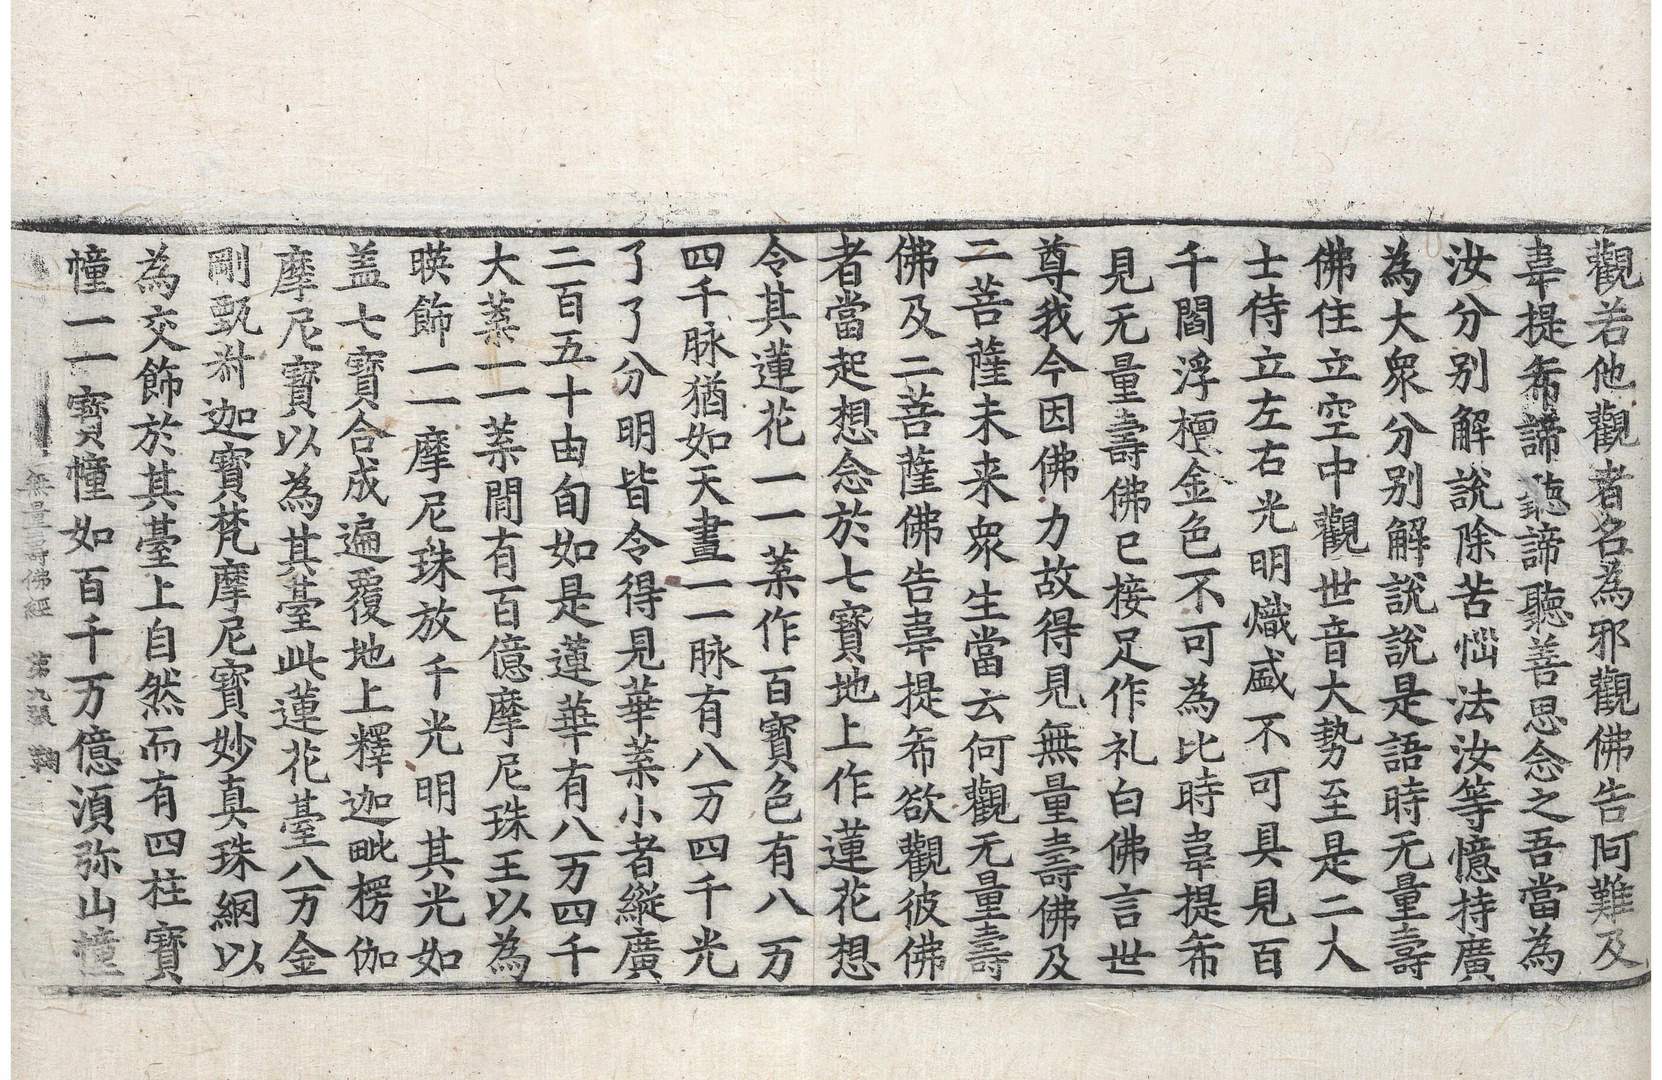 觀若他觀者名為邪觀佛告阿難及
韋提希諦聽諦聽善思念之吾當為
汝分别解說除苦惱法汝等憶持廣
為大衆分别解說說是語時无量壽
佛住立空中觀世音大勢至是二大
士侍立左右光明熾盛不可具見百
千閻浮檀金色不可為比時韋提希
見无量壽佛已接足作礼白佛言世
尊我今因佛力故得見無量壽佛及
二菩薩未来衆生當云何觀无量壽
佛及二菩薩佛告韋提希欲觀彼佛
者當起想念於七寶地上作蓮花想
令其蓮花一一葉作百寶色有八万
四千脉猶如天畫一一脉有八万四千光
了了分明皆令得見華葉小者縱廣
二百五十由旬如是蓮華有八万四千
大葉一一葉間有百億摩尼珠王以為
暎飾一一摩尼珠放千光明其光如
盖七寶合成遍覆地上釋迦毗楞伽
摩尼寶以為其臺此蓮花臺八万金
剛甄叔迦寶梵摩尼寶妙真珠網以
為交飾於其臺上自然而有四柱寶
幢一一寶幢如百千万億湏弥山幢
無量壽佛經 第九張 鞠